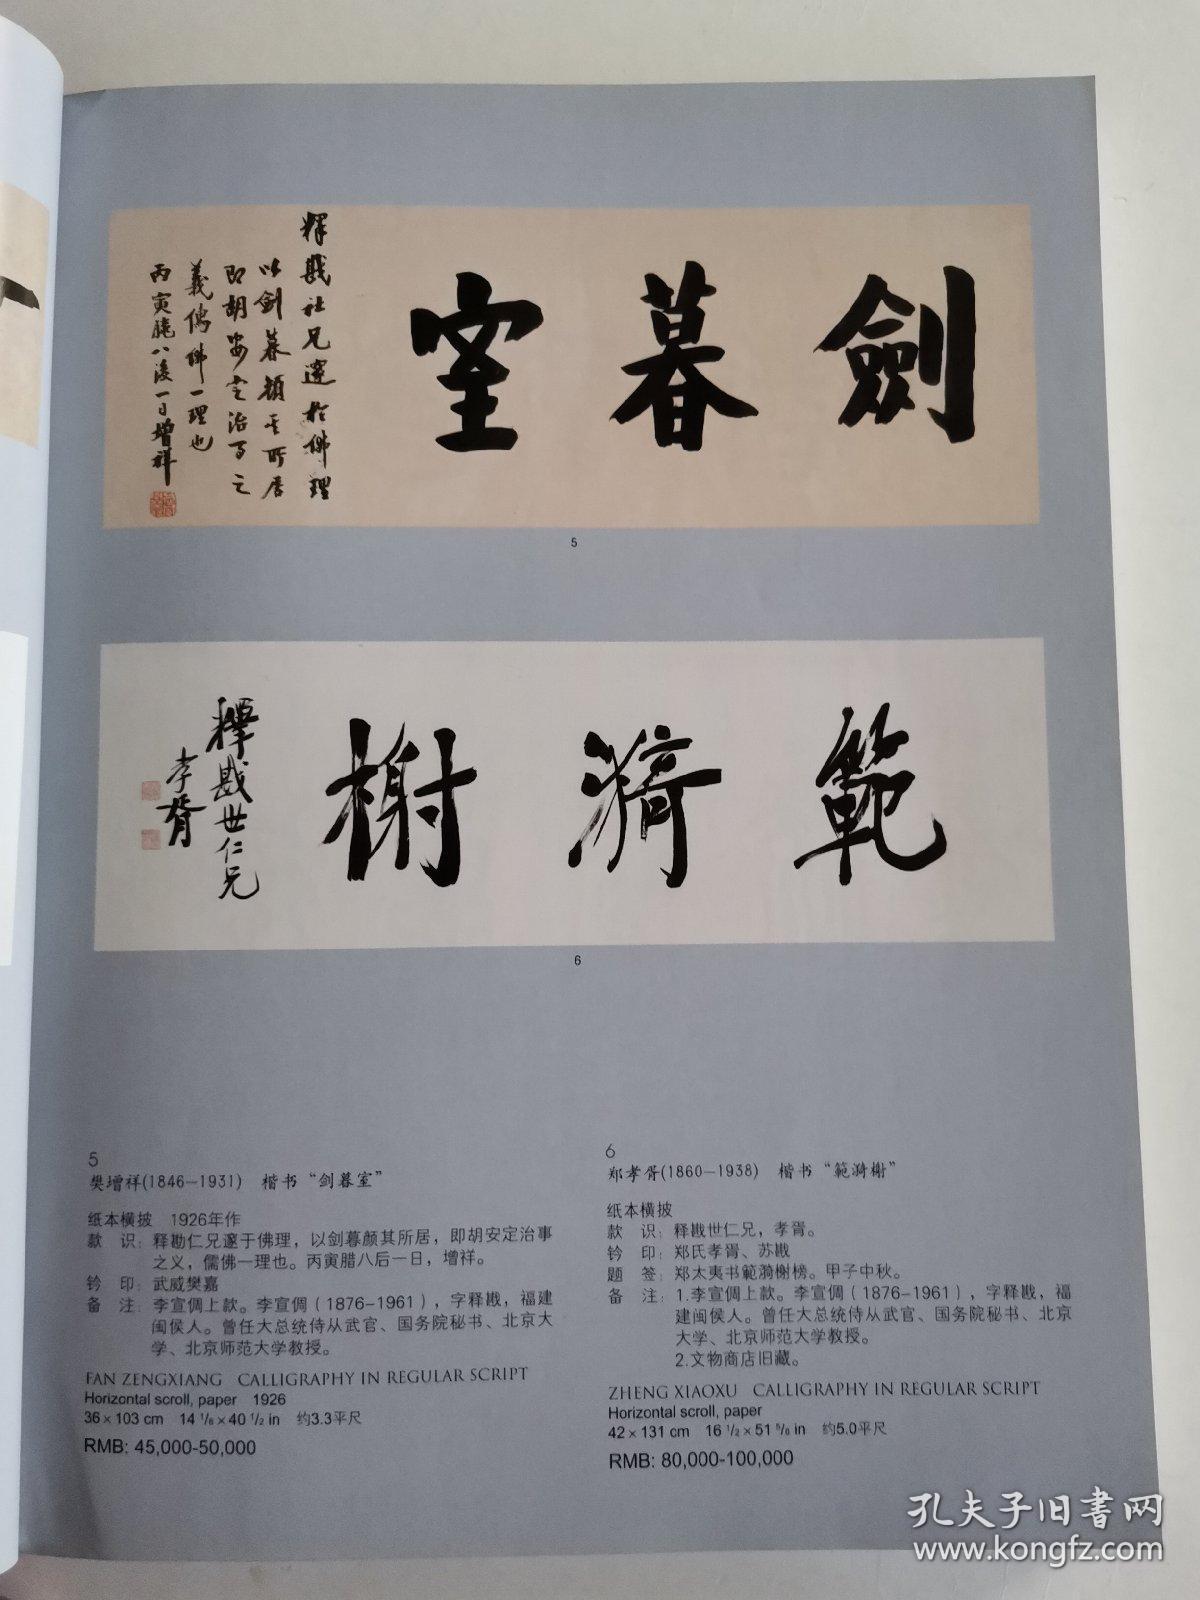 劍暮室
釋戡社兄邃於佛理
以劍暮顏其所居
即胡安定治事之
義儒佛一理也
丙寅臘八後一日增祥
5
範漪榭
釋戡世仁兄
孝胥
6
5
樊增祥(1846-1931) 楷书“剑暮室”
纸本横披 1926年作
款 识：释勘仁兄邃于佛理，以剑暮颜其所居，即胡安定治事
之义，儒佛一理也。丙寅腊八后一日，增祥。
钤 印：武威樊嘉
备 注：李宣倜上款。李宣倜（1876-1961），字释戡，福建
闽侯人。曾任大总统侍从武官、国务院秘书、北京大
学、北京师范大学教授。
FAN ZENGXIANG CALLIGRAPHY IN REGULAR SCRIPT
Horizontal scroll, paper 1926
36×103 cm 14 1/8×40 1/2 in 约3.3平尺
RMB: 45,000-50,000
6
郑孝胥(1860-1938) 楷书“範漪榭”
纸本横披
款 识：释戡世仁兄，孝胥。
钤 印：郑氏孝胥、苏戡
题 签：郑太夷书範漪榭榜。甲子中秋。
备 注：1.李宣倜上款。李宣倜（1876-1961），字释戡，福
建闽侯人。曾任大总统侍从武官、国务院秘书、北京
大学、北京师范大学教授。
2.文物商店旧藏。
ZHENG XIAOXU CALLIGRAPHY IN REGULAR SCRIPT
Horizontal scroll, paper
42×131 cm 16 1/2×51 5/8 in 约5.0平尺
RMB: 80,000-100,000
孔夫子旧书网
www.kongfz.com